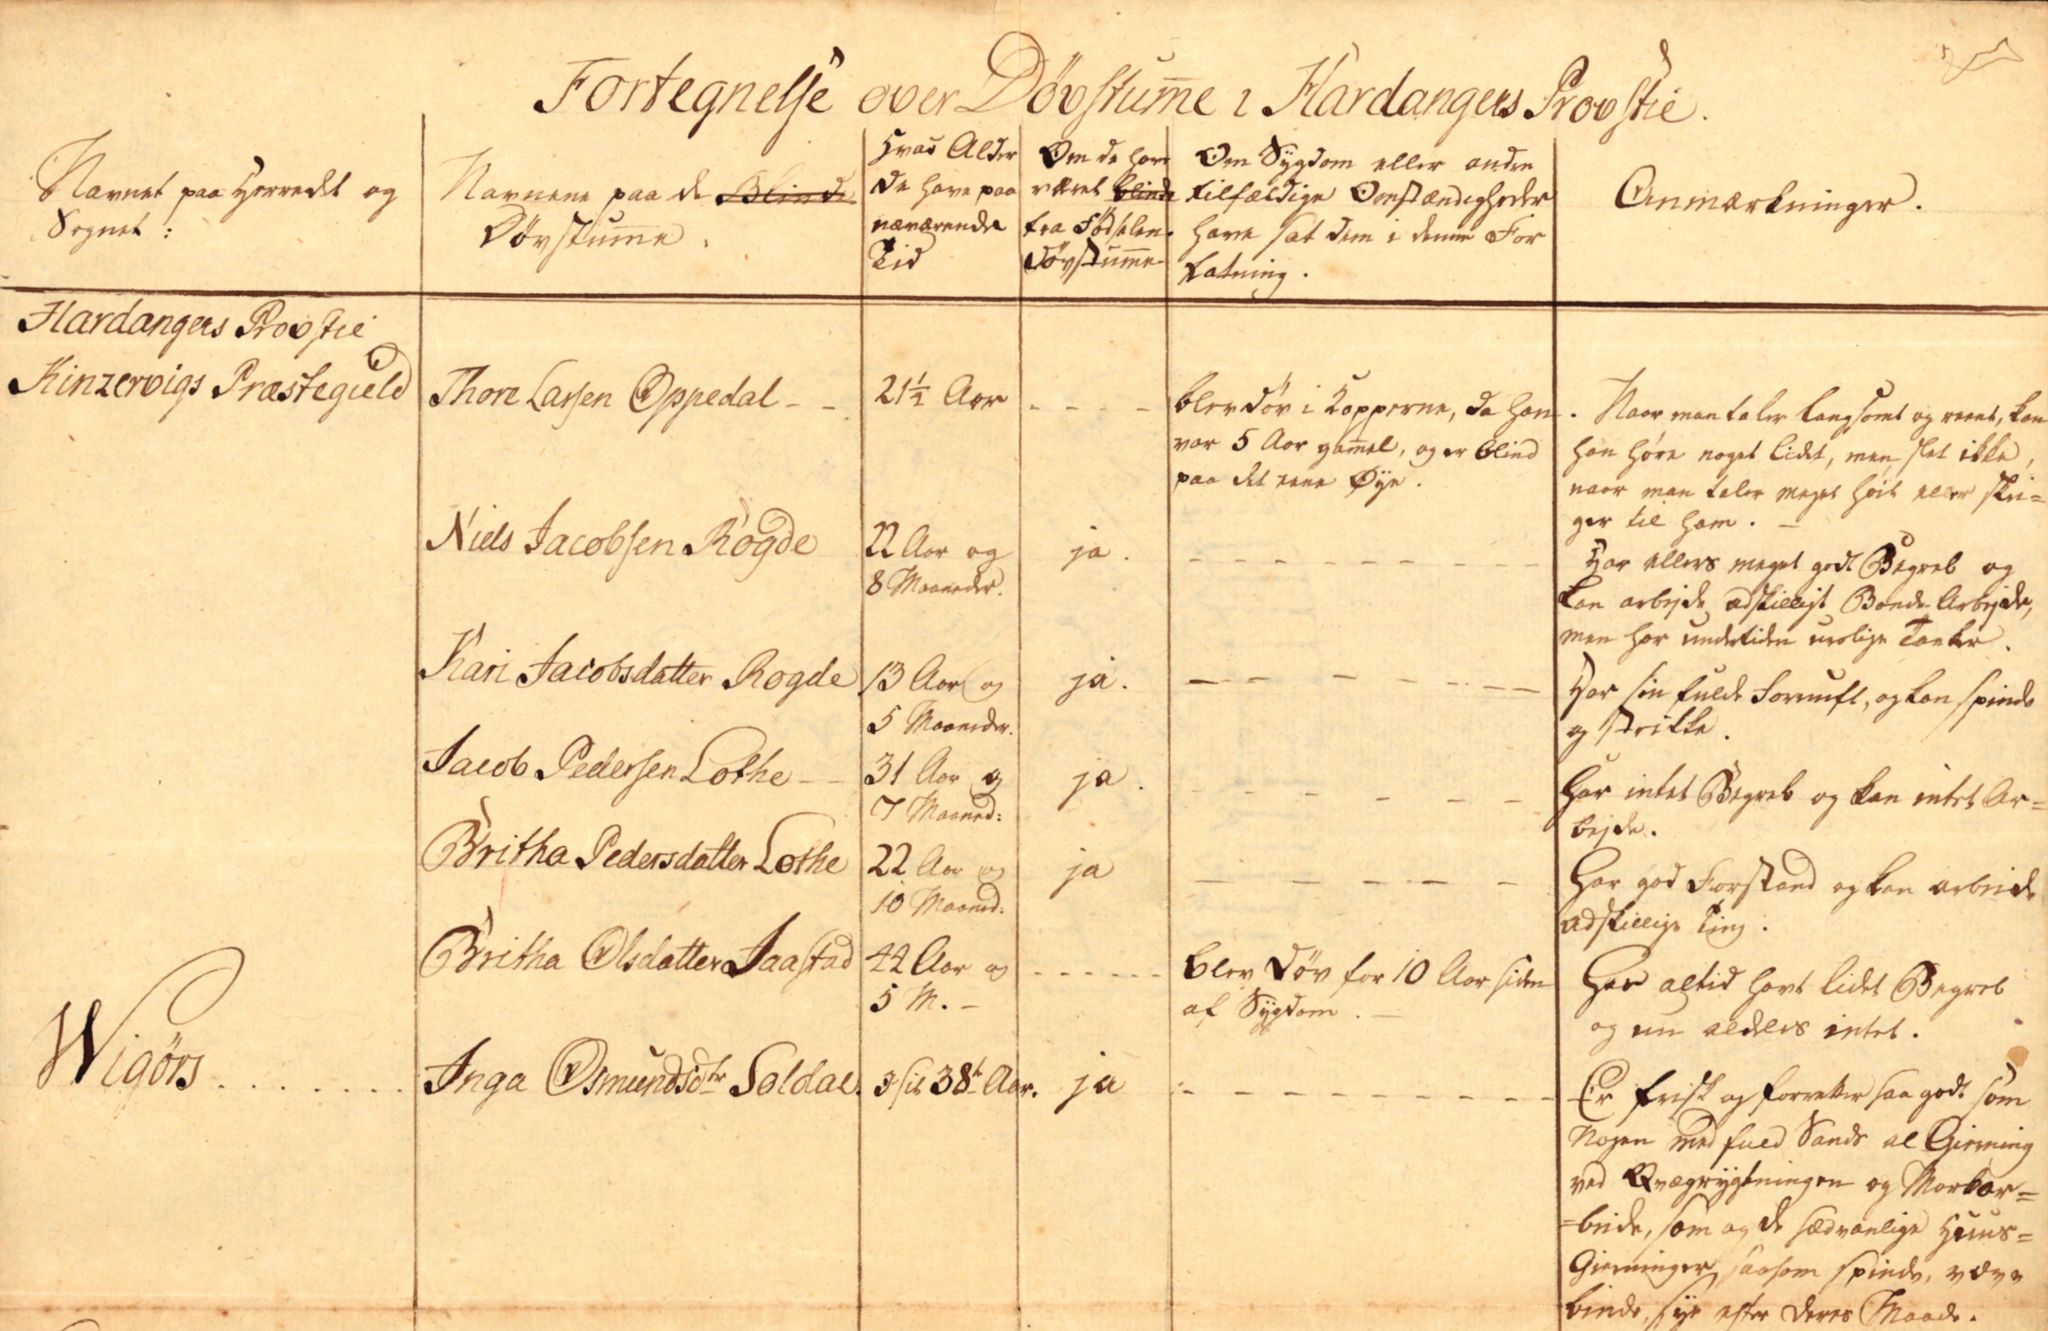 Fortegnelse over Døvstum̅e i Hardangers Provstie.
Navnet paa Herredet og
Sognet:
Navnene paa de Blinde
Døvstum̅e.
Hvad Alder
de have paa
nærværende
Tid
Om de have
været blinde
fra Fødselen
døvstum̅e
Om Sygdom eller andre
tilfældige Omstændigheder
have sat dem i denne For
fatning.
Anmærkninger.
Hardangers Provstie
Kinzervigs Præstegield
Thore Larsen Oppedal - -
21½ Aar
- - - -
blev døv i Kopperne, da han
var 5 Aar gam̅el, og er blind
paa det eene Øye.
Naar man taler langsomt og reent, kan
han høre noget lidet, men slet ikke,
naar man taler meget høit eller skri=
ger til ham. -
Niels Jacobsen Rogde
22 Aar og
8 Maaneder.
ja.
- - - - - - - - - -
Har ellers meget godt Begreb og
kan arbejde adskilligt Bonde-Arbejde,
men har undertiden urolige Tanker.
Kari Jacobsdatter Rogde
13 Aar og
5 Maaneder.
ja.
- - - - - - - - -
Har sin fulde Fornuft, og kan spinde
og strikke.
Jacob Pedersen Lothe - -
31 Aar og
7 Maaned:
ja.
- - - - - - - -
Har intet Begreb og kan intet Ar=
bejde.
Britha Pedersdatter Lothe
22 Aar og
10 Maaned:
ja
- - - - - -
Har god Forstand og kan arbeide
adskillige Ting.
Britha Olsdatter Jaastad
42 Aar og
5 M. -
- - - - - -
blev døv for 10 Aar siden
af Sygdom. -
Har altid havt lidet Begreb
og nu alldeles intet.
Wigørs . . . . . . .
Inga Osmundsdtr Soldal.
38te Aar.
ja
- - - - - - - - - -
Er frisk og forretter saa godt som
Nogen med fuld Sands al Gierning
ved Qvægrygtningen og Markar=
=beide, som og de sædvanlige Huus=
Gierninger, saasom spinde, væve
binde, sye efter deres Maade.